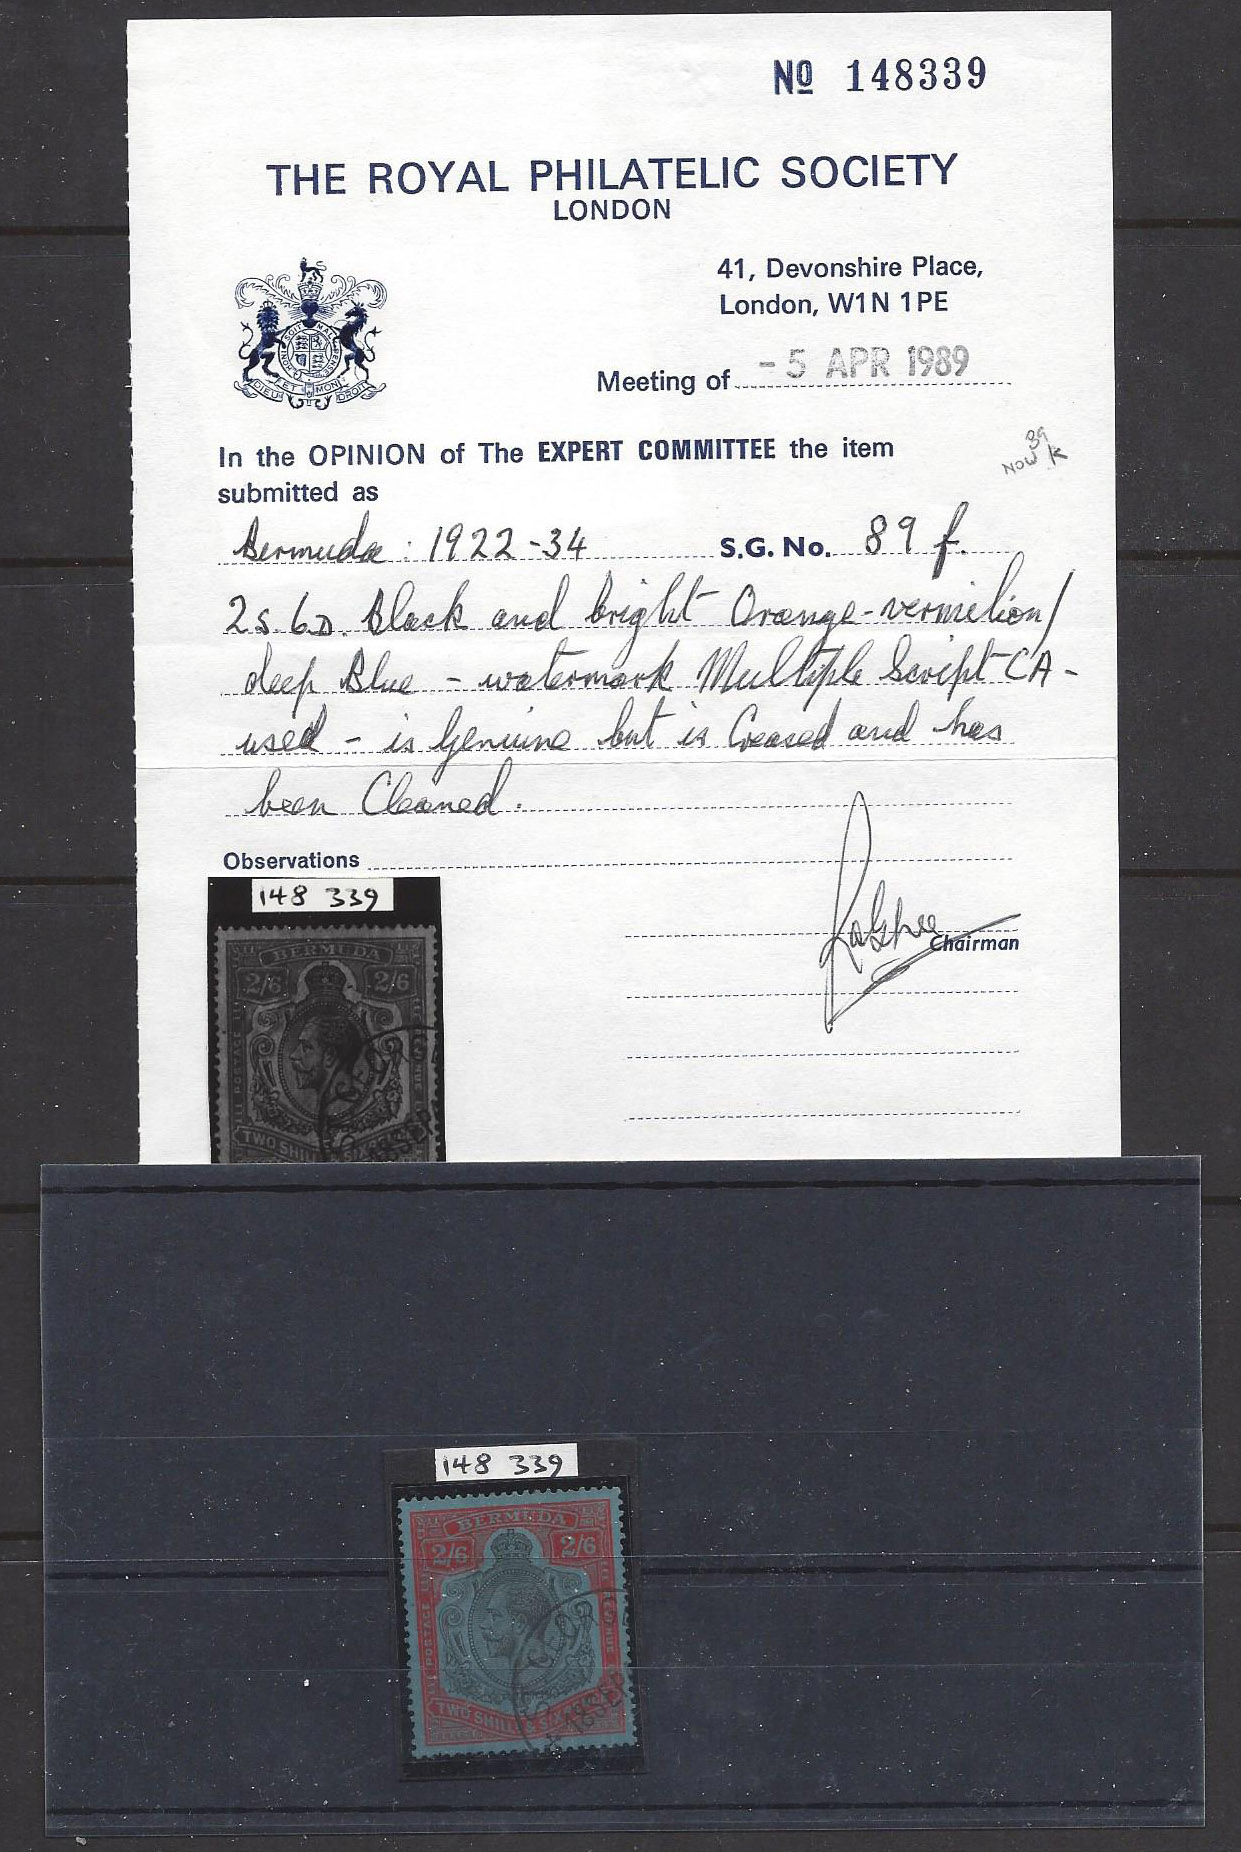 Nº 148339
THE ROYAL PHILATELIC SOCIETY
LONDON
41, Devonshire Place,
London, W1N 1PE
Meeting of - 5 APR 1989
89
NOW K
In the OPINION of The EXPERT COMMITTEE the item
submitted as
Bermuda: 1922-34 S.G. No. 89 f.
2s. 6D. Black and bright Orange-vermilion/
deep Blue - watermark Multiple Script CA -
used - is Genuine but is Creased and has
been Cleaned.
Observations
148 339
Chairman
BERMUDA
2/6 2/6
POSTAGE
TWO SHILL
148 339
BERMUDA
2/6 2/6
POSTAGE REVENUE
TWO SHILL
18 SEP